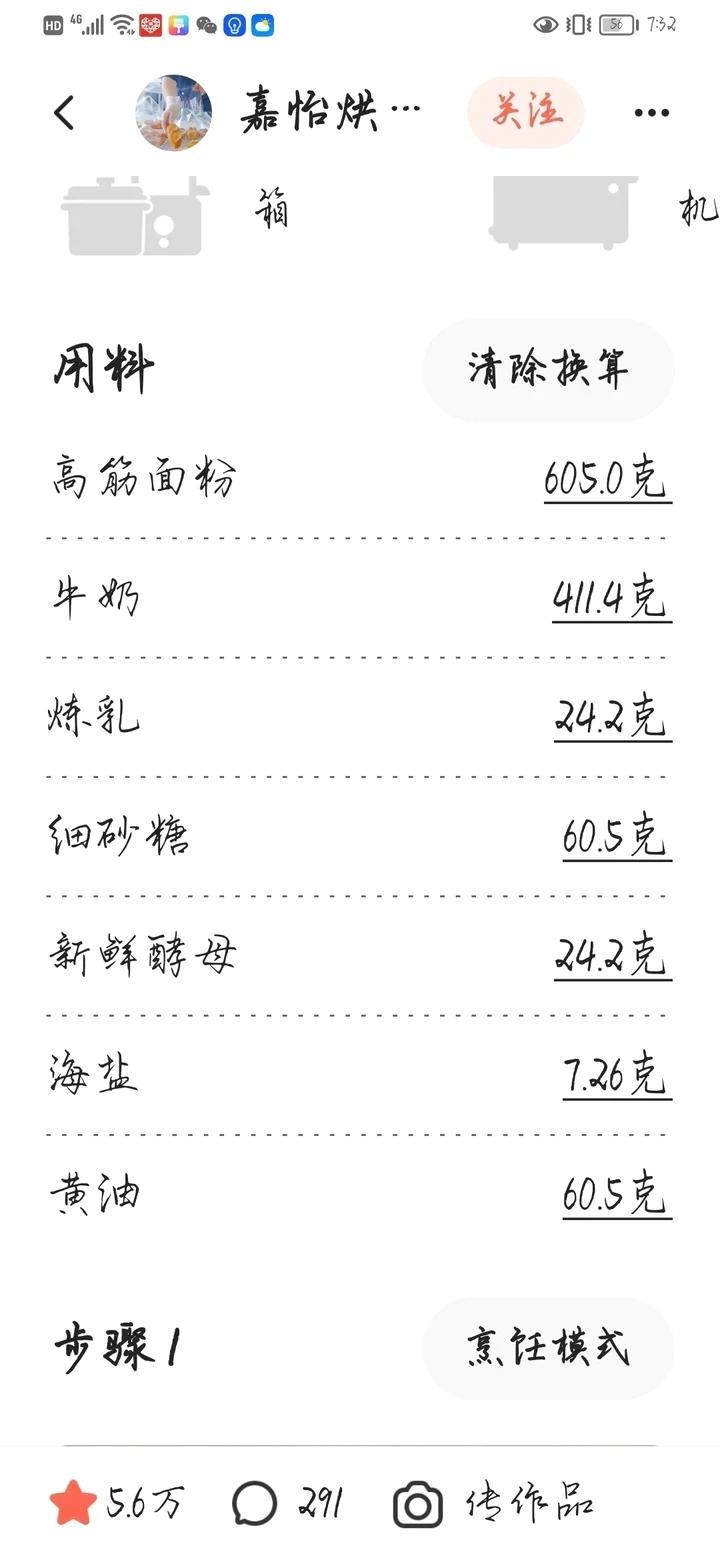 HD 4G 56 7:32
嘉怡烘… 关注
箱 机
用料 清除换算
高筋面粉 605.0克
牛奶 411.4克
炼乳 24.2克
细砂糖 60.5克
新鲜酵母 24.2克
海盐 7.26克
黄油 60.5克
步骤1 烹饪模式
5.6万 291 传作品